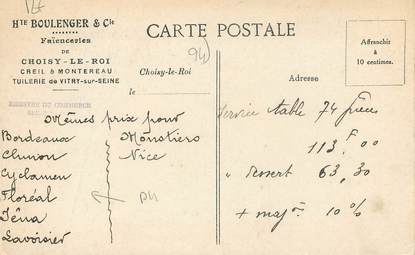 Hte BOULENGER & Cie
Faïenceries
DE
CHOISY-LE-ROI
CREIL & MONTEREAU
TUILERIE de VITRY-sur-SEINE
CARTE POSTALE
Affranchir
à
10 centimes.
94
Choisy-le-Roi
le
Adresse
REGISTRE DU COMMERCE
Mêmes prix pour
Bordeaux Moustiers
Chinon Nice
Cyclamen
Floréal
Iéna
Lavoisier
Service table 74 pièces
113 F. 00
" dessert 63,30
+ majon 10%